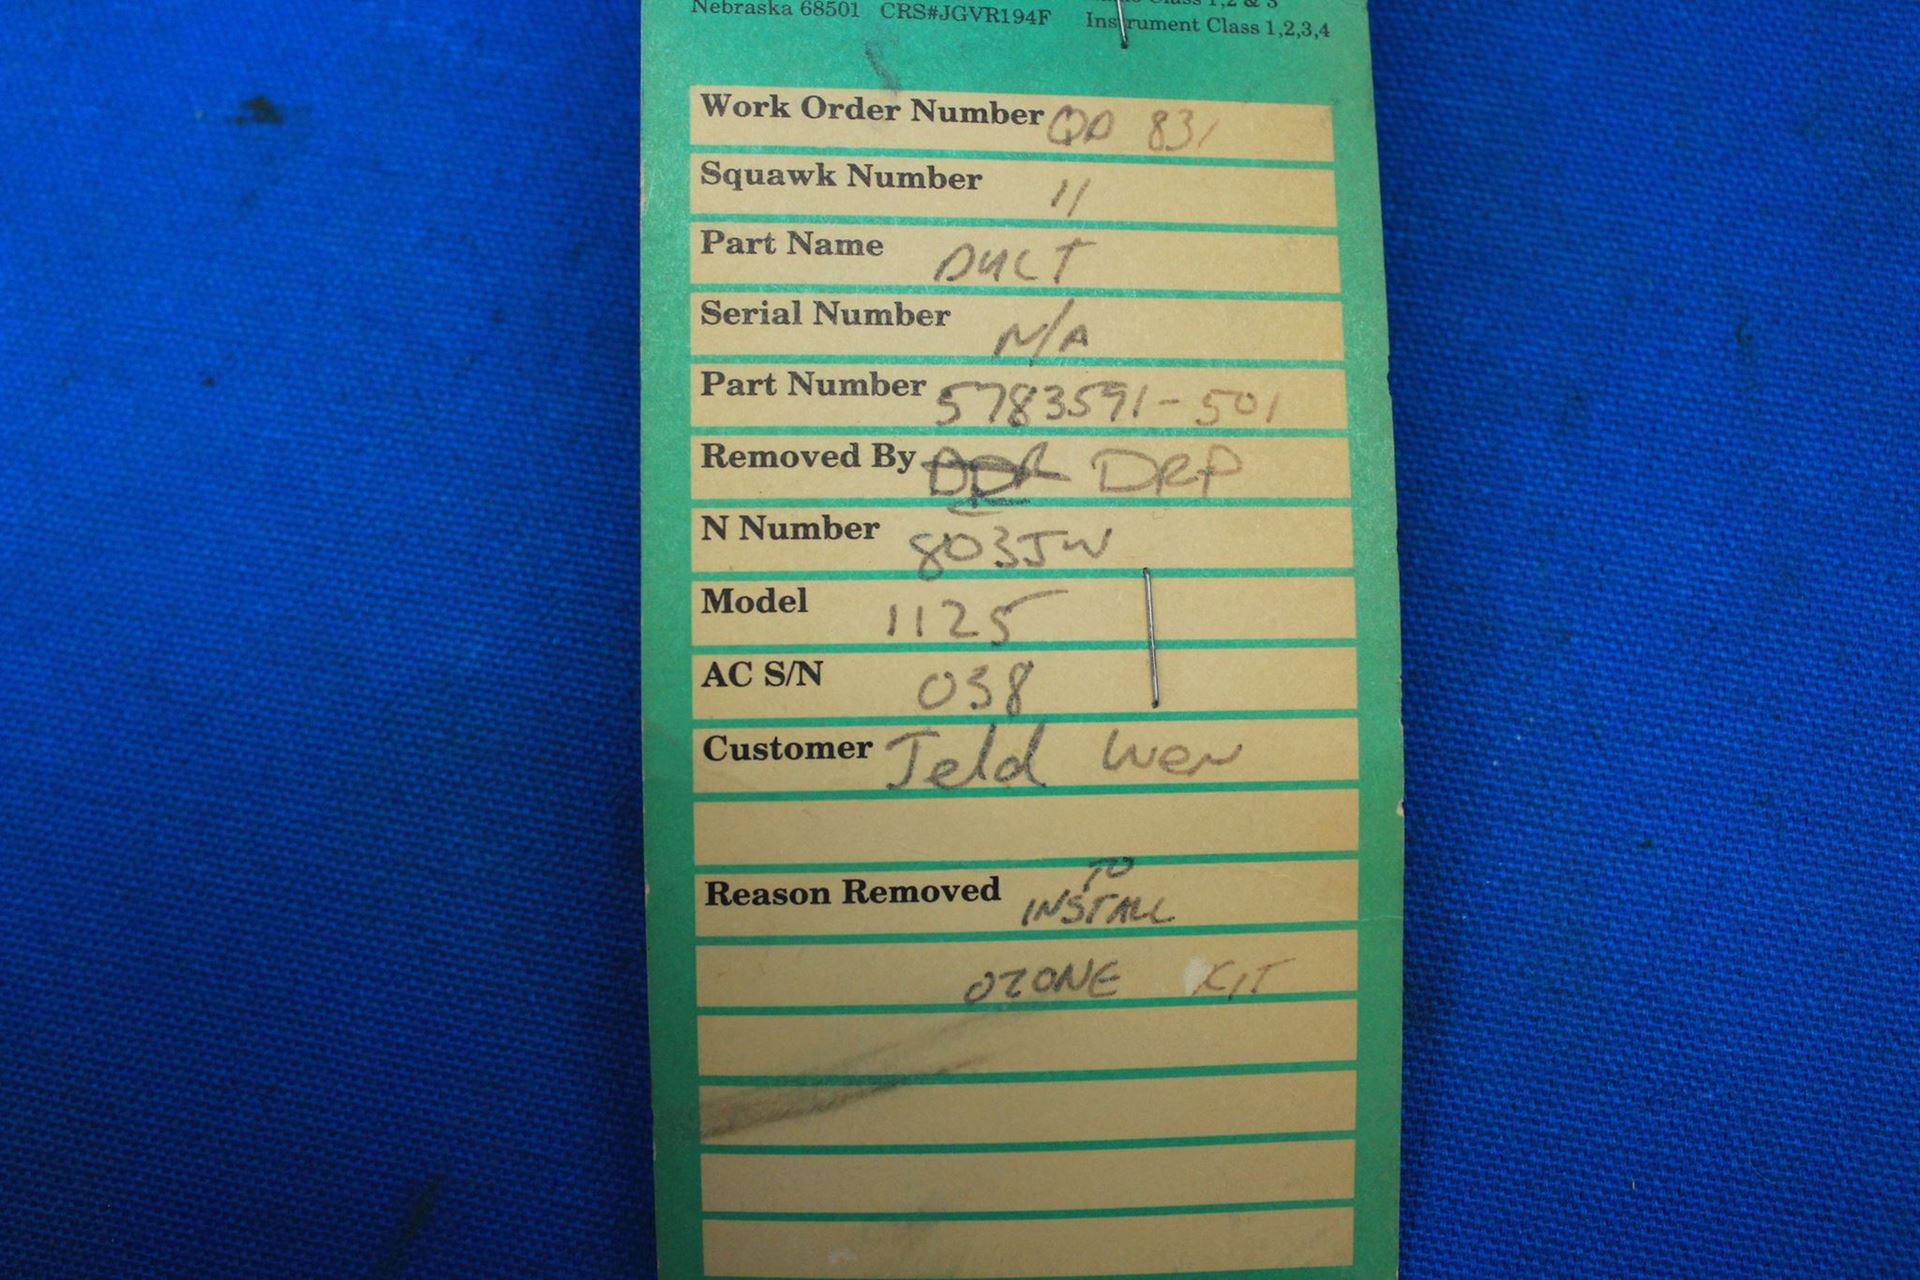 Class 1,2 & 3
Nebraska 68501 CRS#JGVR194F Instrument Class 1,2,3,4
Work Order Number QD 831
Squawk Number 11
Part Name DUCT
Serial Number N/A
Part Number 5783591-501
Removed By DRP
N Number 803JW
Model 1125
AC S/N 038
Customer Jeld Wen
Reason Removed TO
INSTALL
OZONE KIT